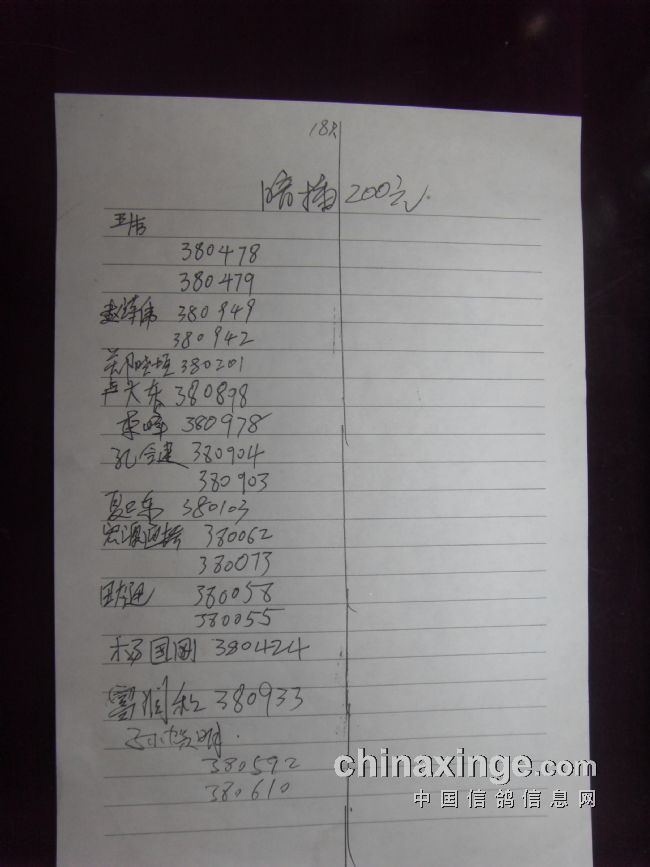 18
暗插200元
380478
380479
380949
380942
380201
卢大东 380898
峰 380978
孔令建 380904
380903
夏东 380103
宏源 380062
380073
田 380058
380055
杨国刚 380424
富润和 380933
孙贺明
380592
380610
chinaxinge.com
中国信鸽信息网